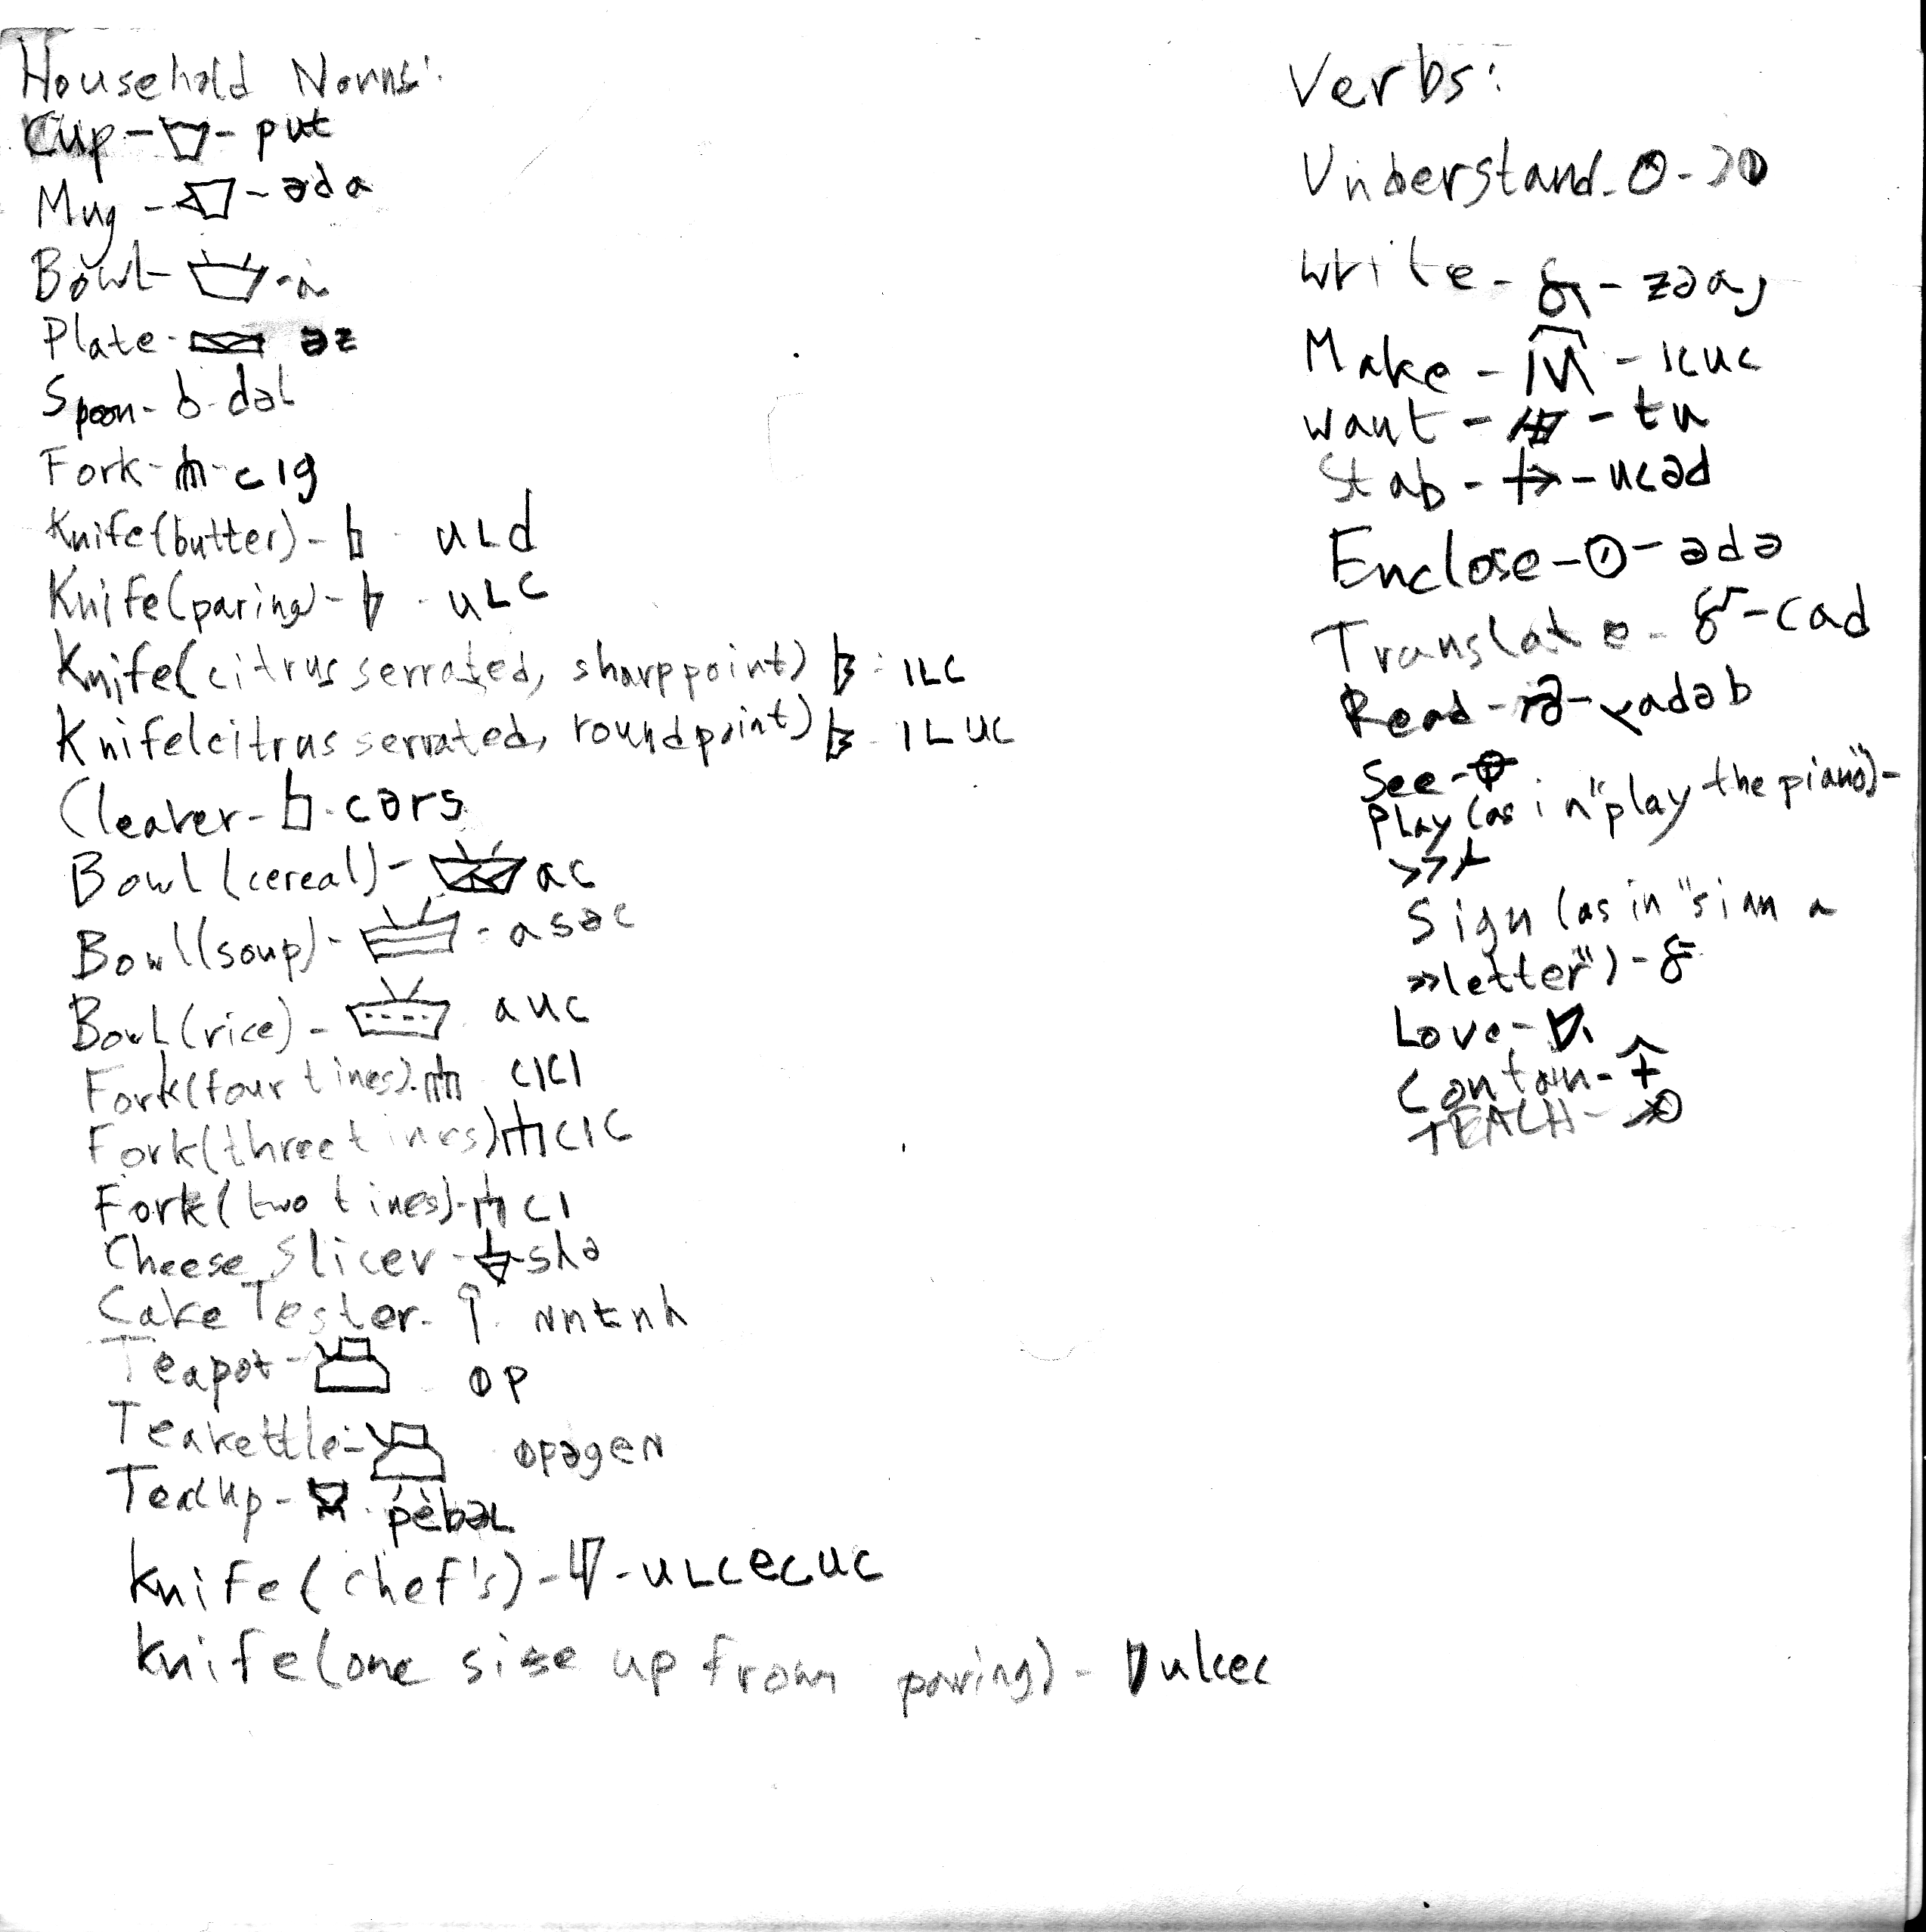 Household Nouns:
Cup - - put
Mug - - ada
Bowl - - a
Plate - əz
Spoon - - dəl
Fork - - cıg
Knife (butter) - - uLd
Knife (paring) - - uLC
Knife (citrus serrated, sharp point) - ıLC
Knife (citrus serrated, round point) - ıLUC
Cleaver - - cərs
Bowl (cereal) - ac
Bowl (soup) - - asəc
Bowl (rice) - auc
Fork (four tines) - cıcı
Fork (three tines) cıc
Fork (two tines) - cı
Cheese Slicer - - slə
Cake Tester -
Teapot - op
Teakettle - opəgen
Teacup - pebəL
knife (chef's) - - uLcecuc
knife (one size up from paring) - ulcec
Verbs:
Understand -
write - -
Make - - ıcuc
want - - tu
Stab - - ucəd
Enclose - - ədə
Translate - - cad
Read - -
See -
Play (as in "play the piano") -
Sign (as in "sign a
»letter") -
Love -
Contain -
TEACH -